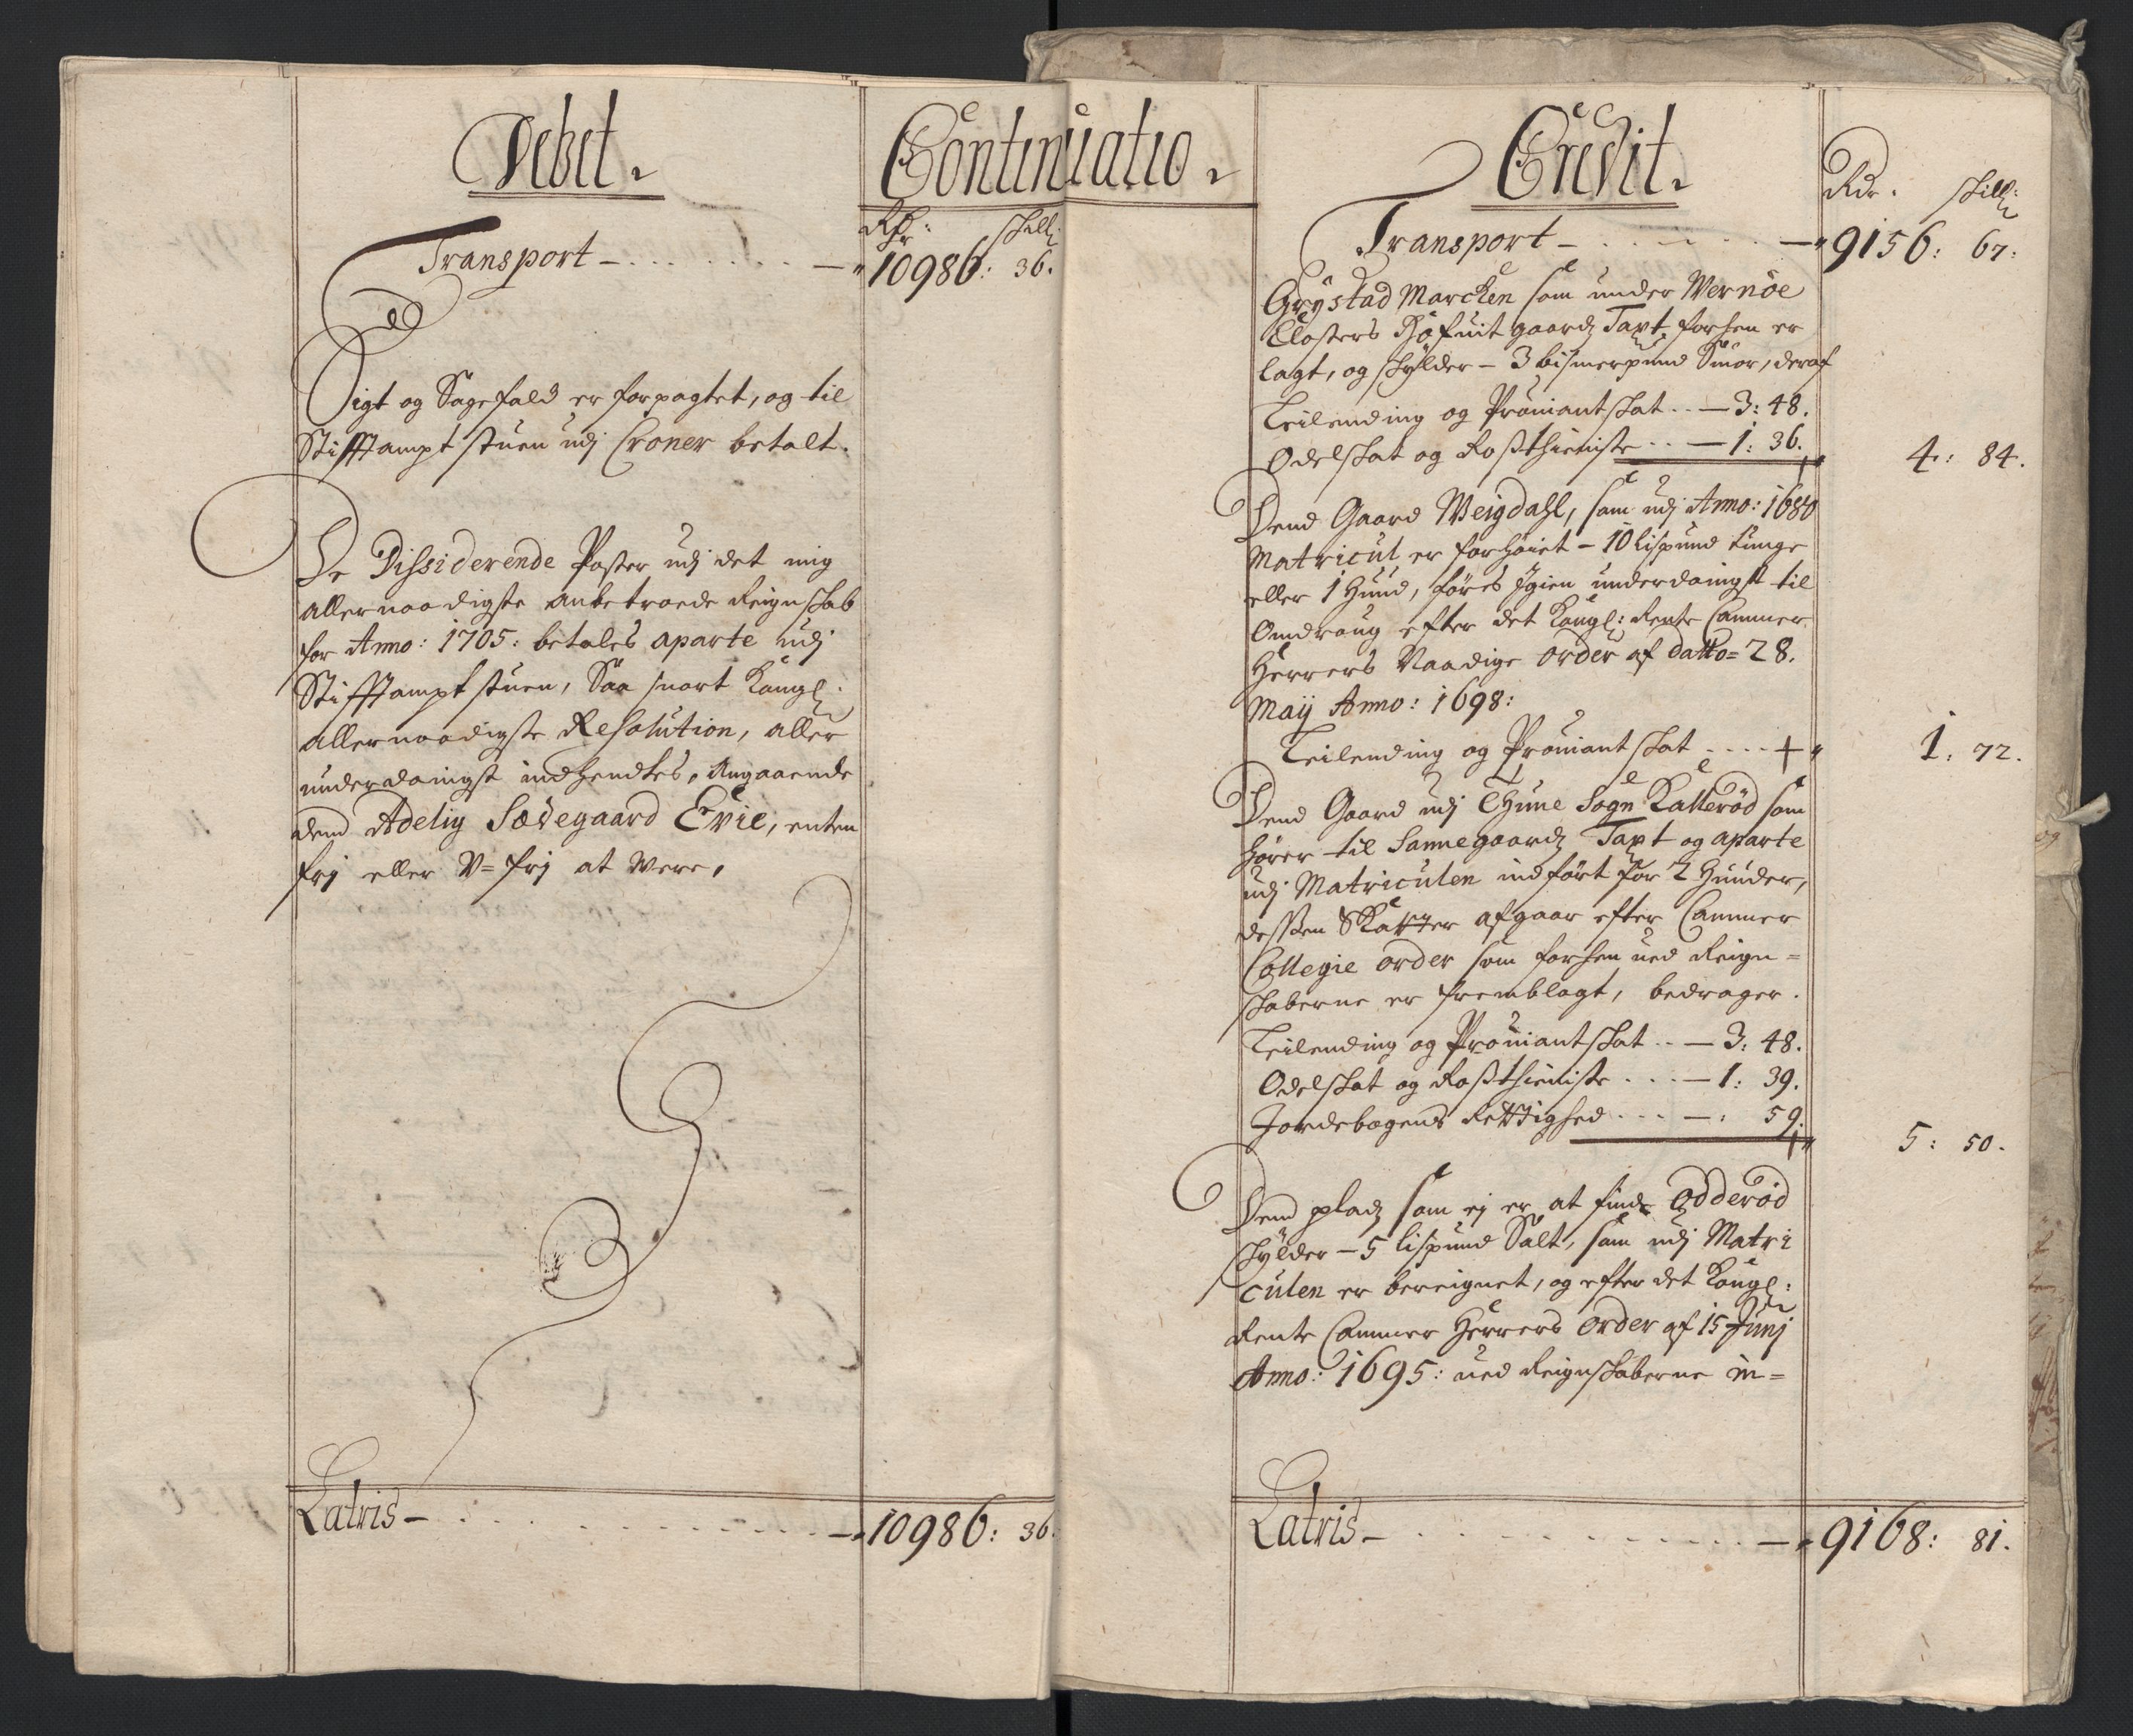 Debet.
Continuatio.
Rdr: skill:
Transport - 10986: 36.
Sigt og Sagefald er forpagtet, og til
Stifftampt stuen udj Croner betalt.
De Dissiderende Poster udj det mig
allernaadigste anbetroede Reignskab
for Anno: 1705: betales aparte udj
Stifftampt stuen, Saa snart Kongl:
allernaadigste Resolution, aller
underdanigst indhendtes, Angaaende
dend Adelig Sædegaard Evie, enten
frj eller V= frj at were,
Latris - 10986: 36.
Credit.
Rdr. skill:
Transport - 9156: 67:
Grystad Marcken som under Wernöe
Closters Hofuit gaardz Taxt forhen er
lagt, og skylder - 3 bismerpund Smör, deraf
Leilending og Proviant skat - 3: 48.
Odelskat og Rossthieniste - 1: 36.
4: 84.
Dend Gaard Weigdahl, som udj Anno: 1680
Matricul er forhöiet - 10 lispund tunge
eller 1 Hund, föres Igien underdanigst til
Omdraug efter det Kongl: Rente Cammer
Herrers Naadige order af datto = 28.
Maij Anno: 1698:
Leilending og Proviant skat
1: 72.
Dend Gaard udj Thune Sogn Katteröd som
hörer til Sannegaardz Taxt og aparte
udj Matriculen indfört for 2 Hunder,
dessen Skatter afgaar efter Cammer
Collegie order som forhen ved Reign=
skaberne er fremblagt, bedrager.
Leilending og Proviantskat - 3: 48.
Odelskat og Rossthieniste - 1: 39.
Jordebogens Rettighed - : 59.
5: 50.
Dend pladz som ej er at finde Odderöd
skylder - 5 lispund Salt, som udj Matri
culen er bereignet, og efter det Kongl:
Rente Cammer Herrers order af 15 Junj
Anno: 1695: ved Reignskaberne in=
Latris - 9168: 81.